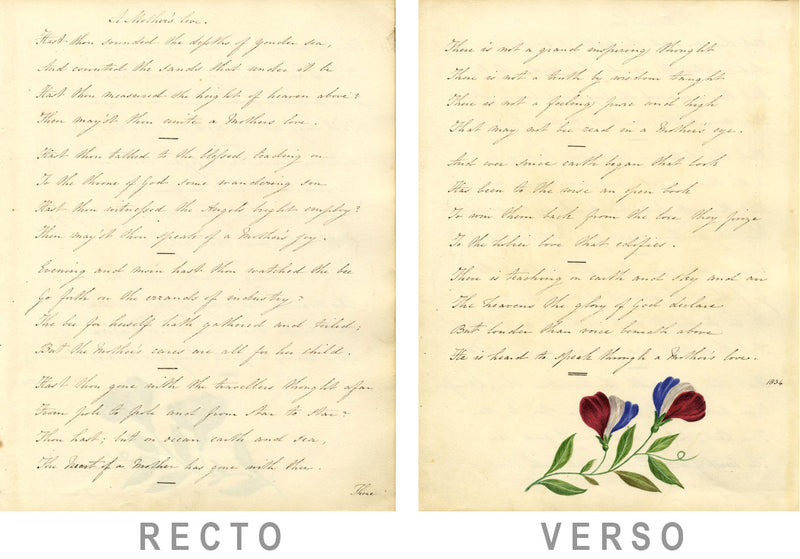 A Mother's love.
Hast thou sounded the depths of yonder sea,
And counted the sands that under it be
Hast thou measured the height of heaven above?
Then may'st thou write a Mother's love.
Hast thou talked to the blessed, leading on
To the throne of God some wandering son
Hast thou witnessed the Angels bright employ?
Then may'st thou speak of a Mother's joy.
Evening and morn hast thou watched the bee
Go forth on the errands of industry?
The bee for herself hath gathered and toiled;
But the Mother's cares are all for her child.
Hast thou gone with the travellers thought afar
From pole to pole and from star to star?
Thou hast; but on ocean earth and sea,
The Heart of a Mother has gone with thee.
There
There is not a grand inspiring thought
There is not a truth by wisdom taught
There is not a feeling pure and high
That may not be read in a Mother's eye.
And ever since earth began that look
Has been to the wise an open book
To win them back from the love they prize
To the holier love that edifies.
There is teaching on earth and sky and air
The heavens the glory of God declare
But louder than voice beneath above
He is heard to speak through a Mother's love.
1834
RECTO
VERSO